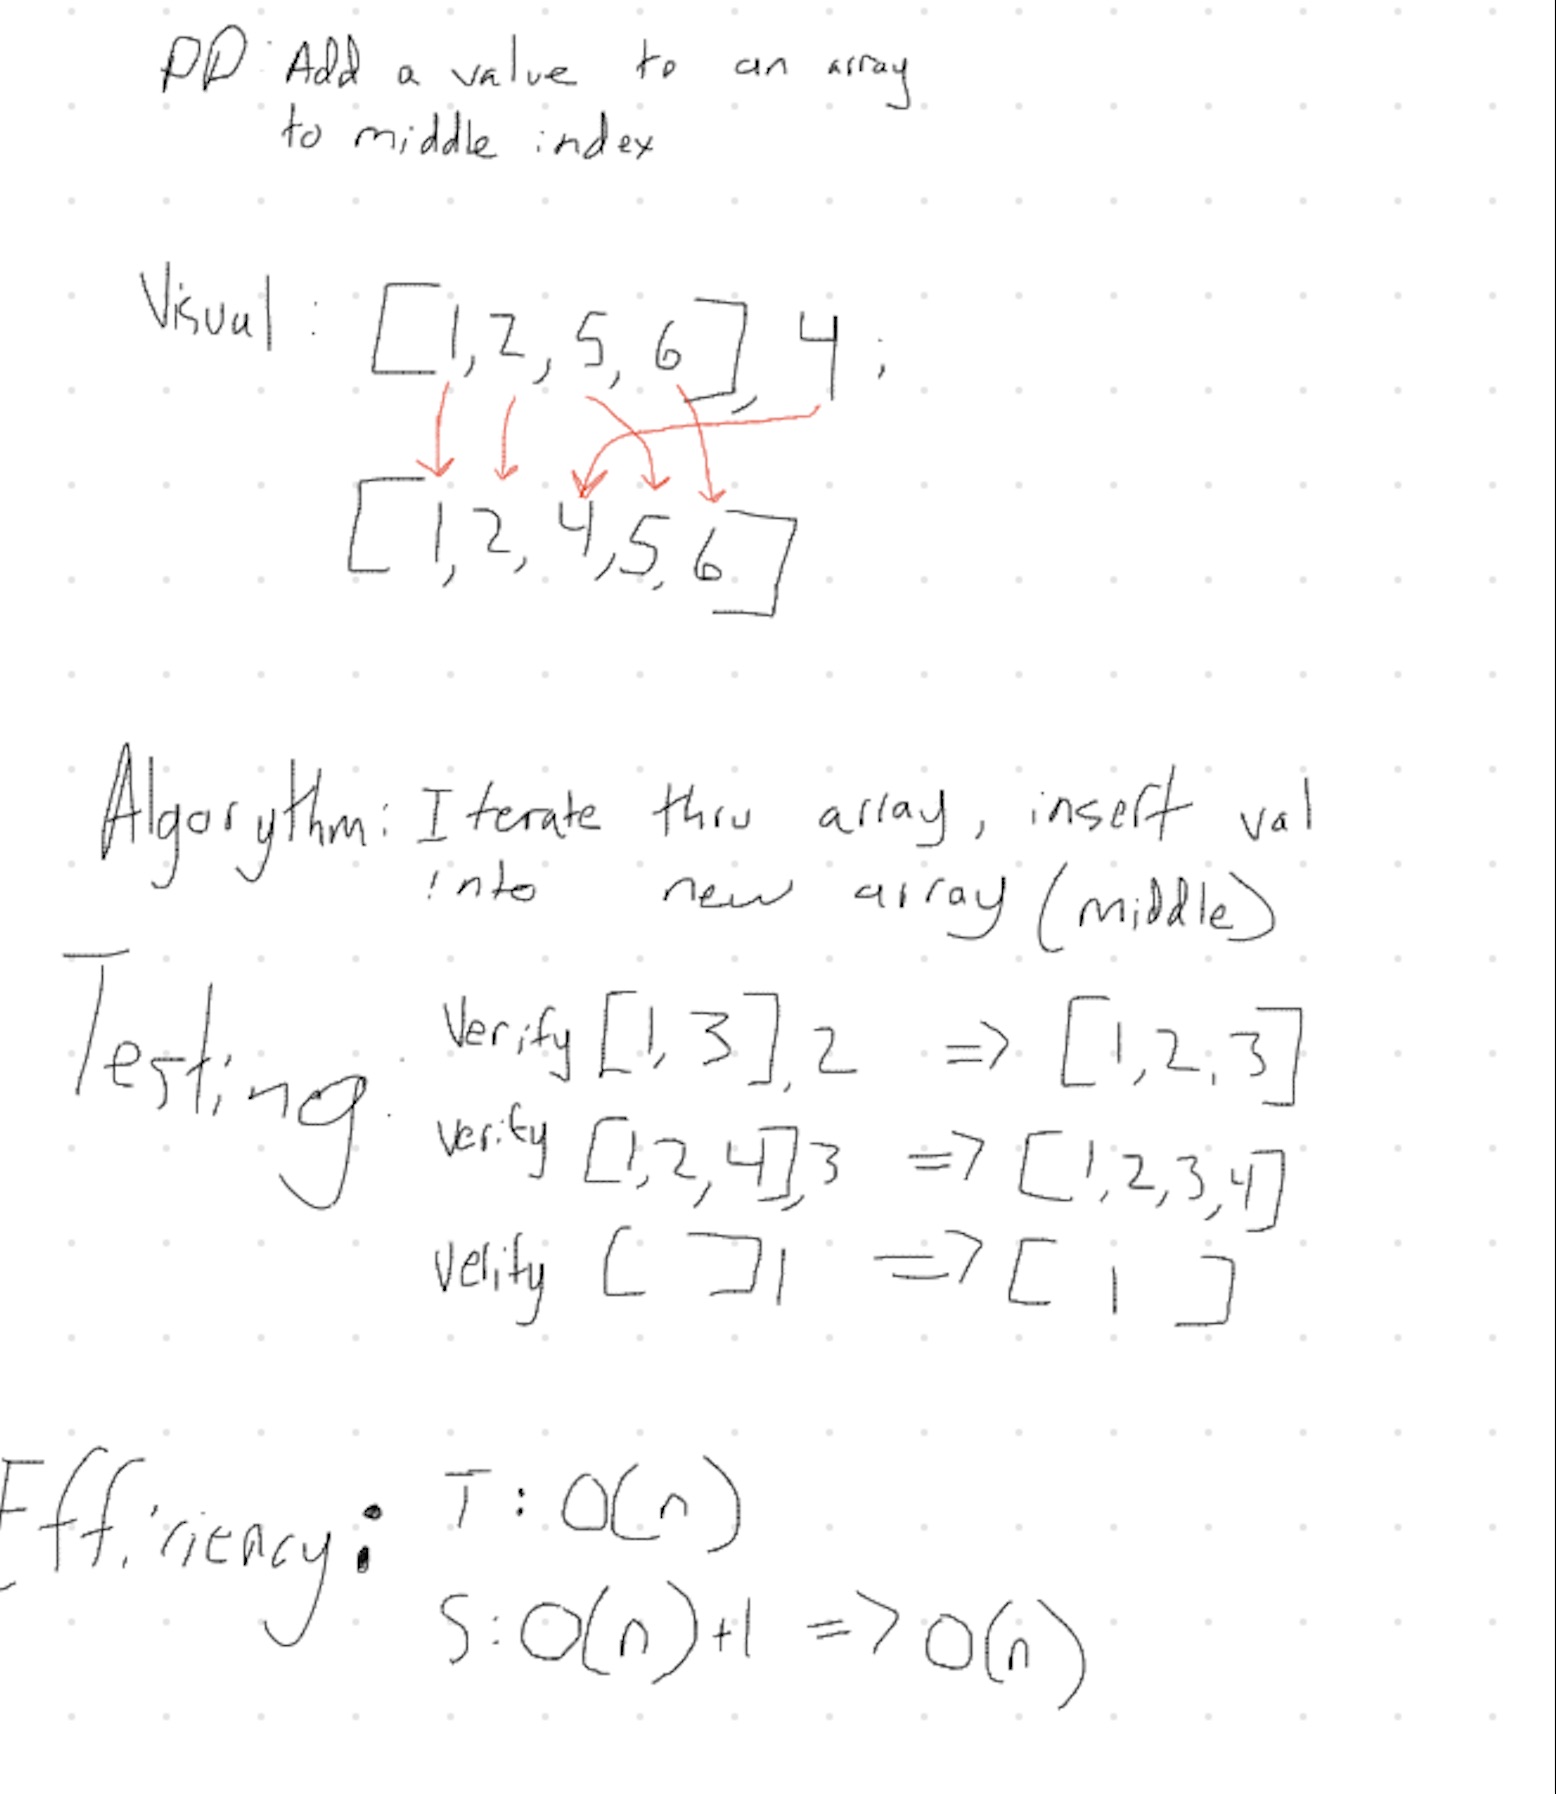 PD: Add a value to an array
to middle index
Visual: [1, 2, 5, 6], 4;
[1, 2, 4, 5, 6]
Algorythm: Iterate thru array, insert val
into new array (middle)
Testing: Verify [1, 3], 2 => [1, 2, 3]
verify [1, 2, 4], 3 => [1, 2, 3, 4]
verify [ ] 1 => [ 1 ]
Efficiency: T: O(n)
S: O(n)+1 => O(n)